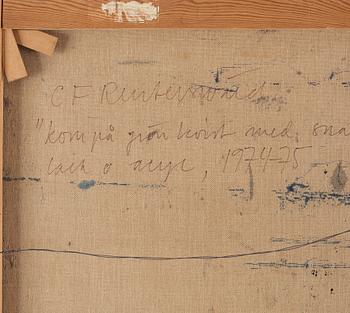 C F Reuterswärd
"kom på grön kvist med, sna
lack o acyl, 1974-75